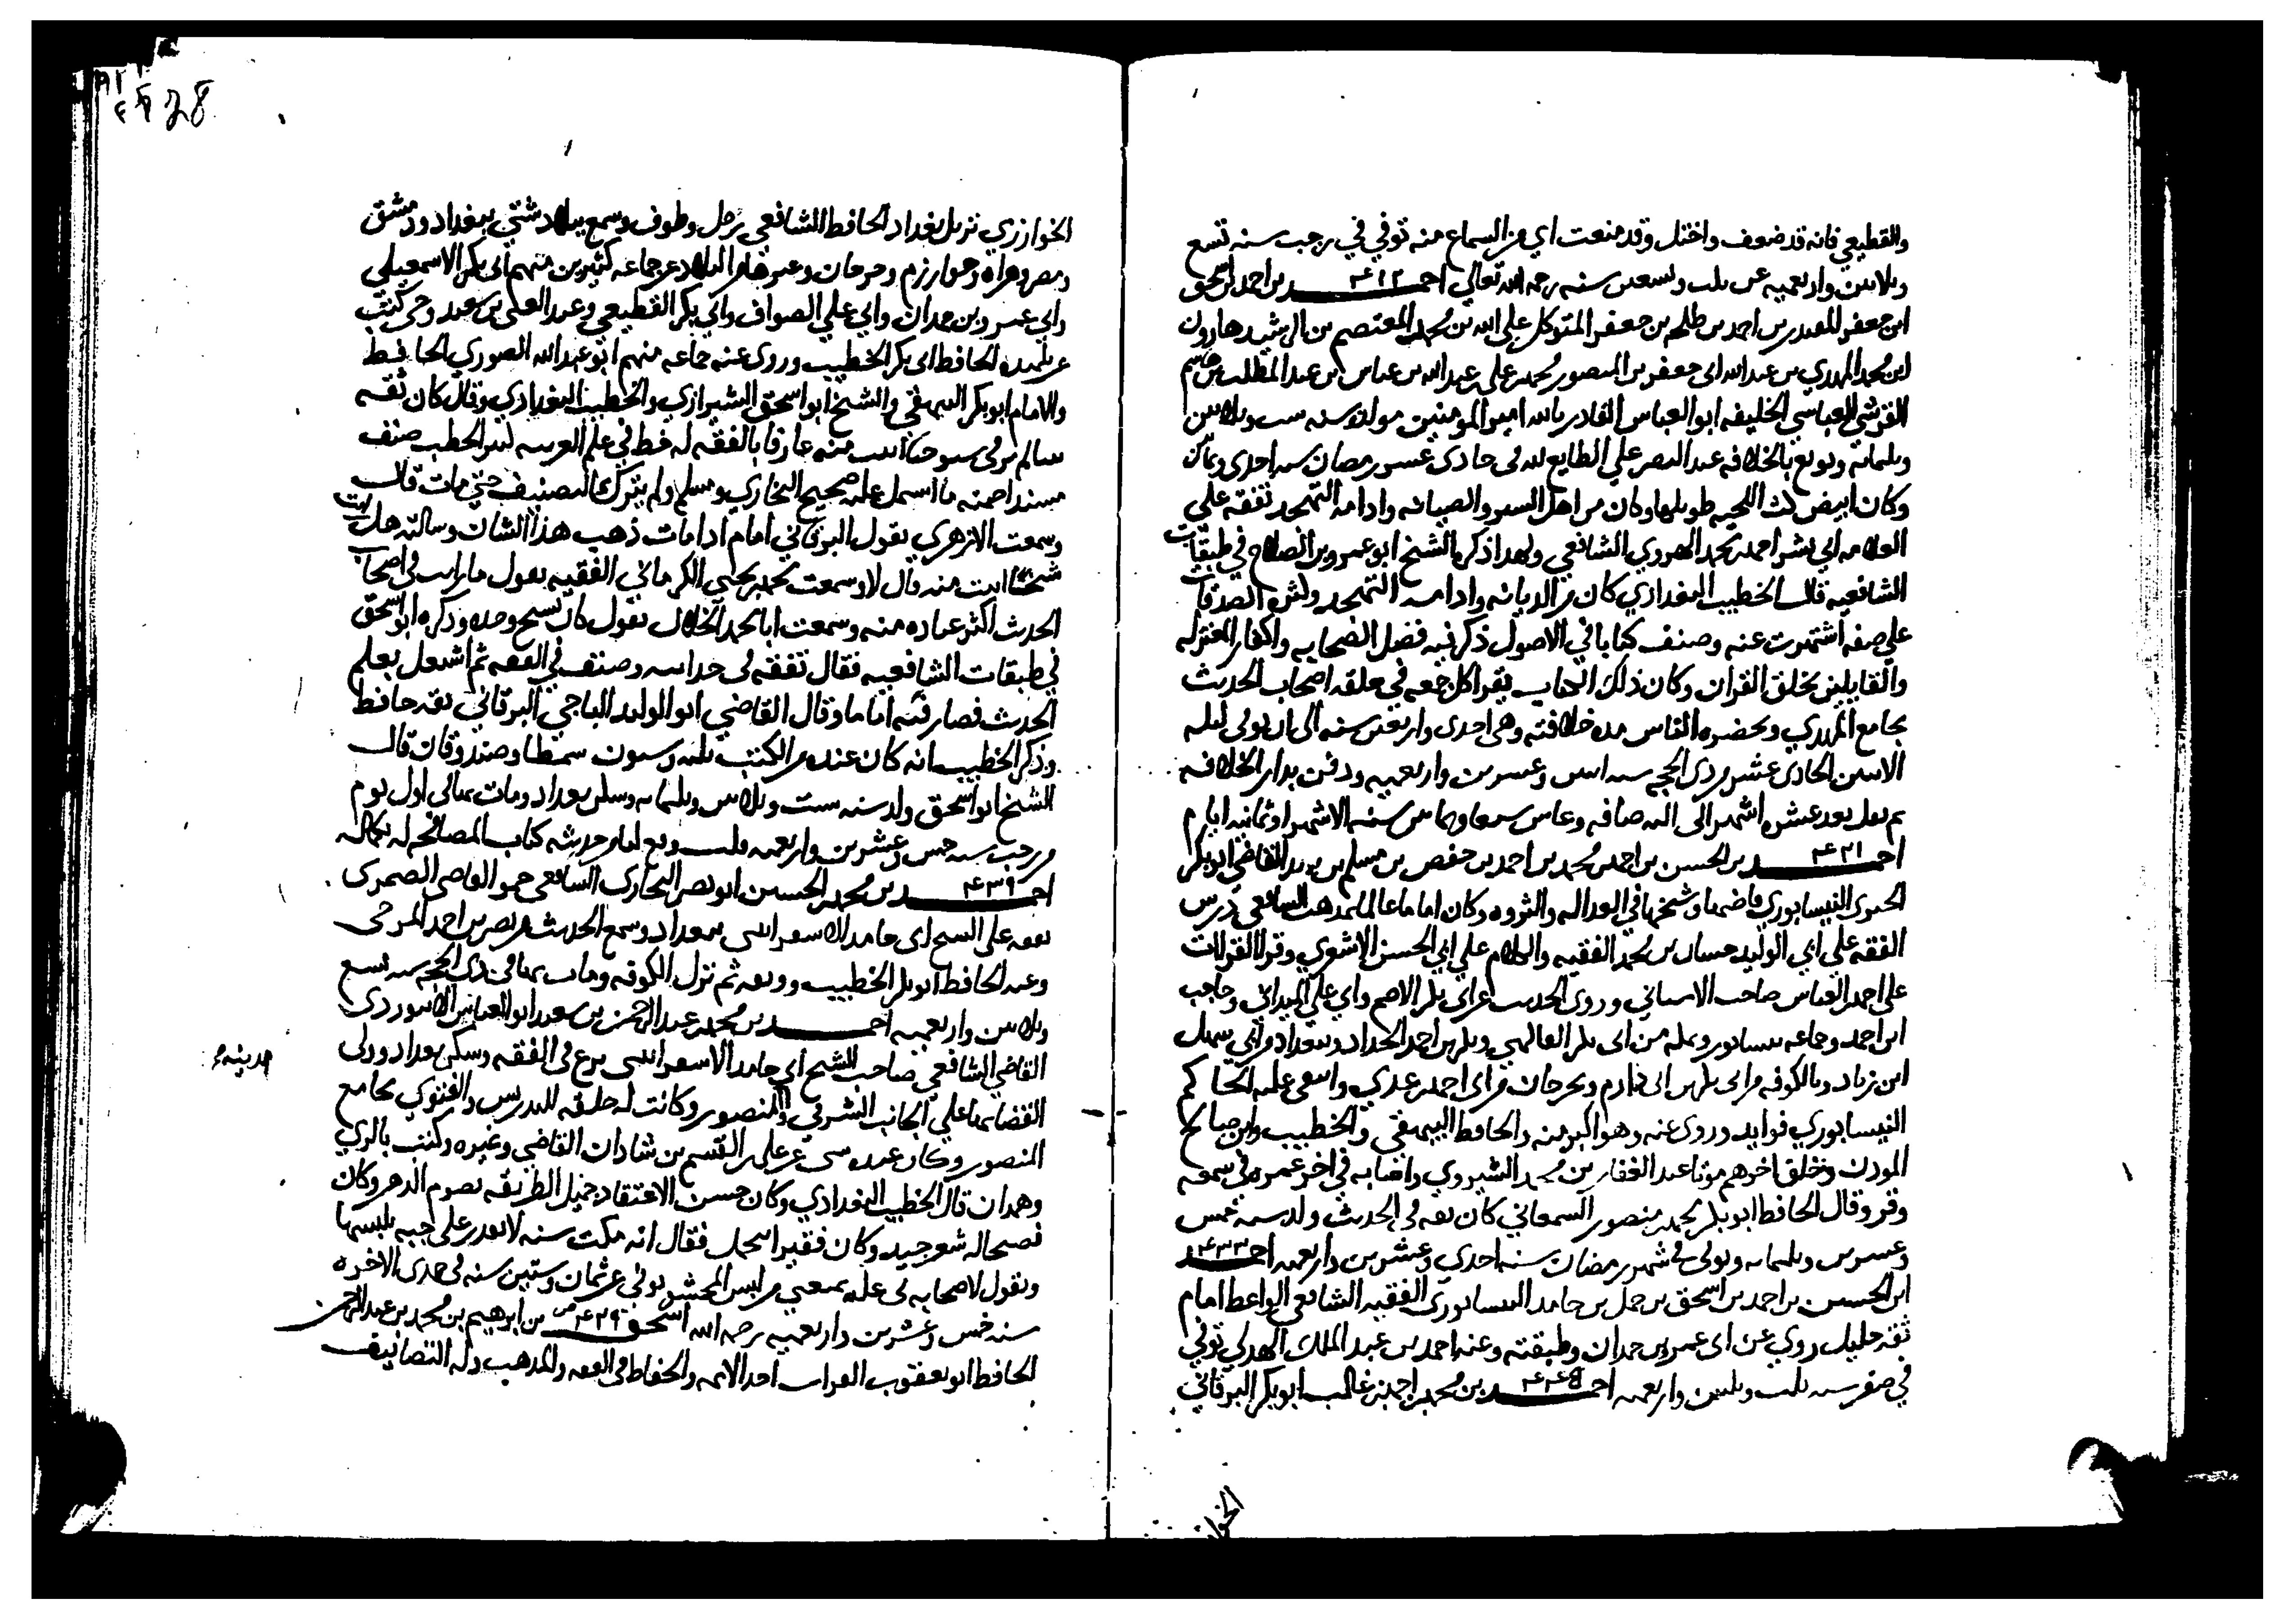 والقطيعي فانه قد ضعف واختل وقد منعت اي من السماع منه توفي في رجب سنه تسع
وثلاثين واربعميه عن ثلث وتسعين سنه رحمه الله تعالى احمد بن احمد بن اسحق
ابن جعفر المقتدر بن احمد بن طلحه بن جعفر المتوكل على الله بن محمد المعتصم بن الرشيد هارون
ابن محمد المهدي بن عبدالله ابي جعفر بن المنصور محمد بن علي بن عبدالله بن عباس بن عبد المطلب بن هاشم
القرشي العباسي الخليفه ابو العباس القادر بالله امير المومنين مولده سنه ست وثلاثين
وثلمائه وبويع بالخلافه عند القبض علي الطايع لله في حادي عشر رمضان سنه احدى وثمانين
وكان ابيض كث اللحيه طويلها وكان من اهل الستر والصيانه وادامه التهجد تفقه علي
العلامه ابي بشر احمد بن محمد الهروي الشافعي ولهذا ذكره الشيخ ابو عمرو بن الصلاح في طبقات
الشافعيه قال الخطيب البغدادي كان من الديانه وادامه التهجد وكثره الصدقات
علي صفه اشتهرت عنه وصنف كتابا في الاصول ذكر فيه فضل الصحابه واكفار المعتزله
والقايلين بخلق القران وكان ذلك الكتاب يقرا كل جمعه في حلقه اصحاب الحديث
بجامع المهدي ويحضره الناس مده خلافته وهي احدى واربعين سنه الى ان توفي ليله
الاثنين الحادي عشر من ذي الحجه سنه اثنين وعشرين واربعميه ودفن بدار الخلافه
ثم نقل بعد عشره اشهر الى الرصافه وعاش سبعا وثمانين سنه الا شهرا وثمانيه ايام
احمد بن الحسن بن احمد بن محمد بن احمد بن حفص بن مسلم بن يزيد القاضي ابو بكر
الحيري النيسابوري قاضيها وشيخها في العداله والثروه وكان اماما عالما بمذهب الشافعي درس
الفقه علي ابي الوليد حسان بن محمد الفقيه والكلام علي ابي الحسن الاشعري وقرا القراات
على احمد بن العباس صاحب الاشناني وروى الحديث عن ابي بكر الاصم وابي علي الميداني وحاجب
ابن احمد وجماعه بنيسابور وبمكه من ابي بكر الفاكهي وبكير بن احمد الحداد وببغداد من ابي سهل
ابن زياد وبالكوفه من ابي بكر بن ابي دارم وبجرجان من ابي احمد بن عدي وانتقى عليه الحاكم
النيسابوري فوايد وروى عنه وهو اكبر منه والحافظ البيهقي والخطيب وابن صالح
الموذن وخلق اخرهم موتا عبد الغفار بن محمد الشيروي واصابه في اخر عمره في سمعه
وقر وقال الحافظ ابو بكر محمد بن منصور السمعاني كان ثقه في الحديث ولد سنه خمس
وعشرين وثلمايه وتوفي في شهر رمضان سنه احدى وعشرين واربعميه احمد
ابن الحسين بن احمد بن اسحق بن حمل بن حامد النيسابوري الفقيه الشافعي الواعظ امام
ثقه جليل روي عن ابي عمرو بن حمدان وطبقته وعنه احمد بن عبد الملك توفي
في صفر سنه ثلث وثلثين واربعميه احمد بن محمد بن احمد بن غالب ابو بكر البرقاني
الخوا
28
الخوارزمي نزيل بغداد الحافظ الشافعي رحل وطوف وسمع ببلاد شتي ببغداد ودمشق
ومصر وهراه وخوارزم وجرجان وغير هذه البلاد عن جماعه كثيرين منهم ابي بكر الاسمعيلي
وابي عمرو بن حمدان وابي علي الصواف وابي بكر القطيعي وعبد الغني بن سعيد وحتى كتب
عن تلميذه الحافظ ابي بكر الخطيب وروى عنه جماعه منهم ابو عبدالله الصوري الحافظ
والامام ابو بكر البيهقي والشيخ ابو اسحق الشيرازي والخطيب البغدادي وقال كان ثقه
لم نر في شيوخنا اثبت منه عارفا بالفقه له حظ في علم العربيه كثير الحديث صنف
مسندا ضمنه ما اشتمل عليه صحيح البخاري ومسلم ولم يترك التصنيف حتى مات قال
وسمعت الازهري يقول البرقاني امام اذا مات ذهب هذا الشان وسالته هل رايت
شيخا اثبت منه قال لا وسمعت محمد بن يحيى الكرماني الفقيه يقول ما رايت في اصحاب
الحديث اكثر عباده منه وسمعت ابا محمد الخلال يقول كان نسيج وحده وذكره ابو اسحق
في طبقات الشافعيه فقال تفقه في حداثته وصنف في الفقه ثم اشتغل بعلم
الحديث فصار فيه اماما وقال القاضي ابو الوليد الباجي البرقاني ثقه حافظ
وذكر الخطيب انه كان عنده من الكتب ثلثه وستون سفطا وصندوقان قال
الشيخ ابو اسحق ولد سنه ست وثلاثين وثلمايه وسكن بغداد ومات بها في اول يوم
من رجب سنه خمس وعشرين واربعميه قلت وقع لنا من حديثه كتاب المصافحه له بكماله
احمد بن محمد بن الحسين ابو نصر البخاري الشافعي حمو القاضي الصيمري
تفقه علي الشيخ ابي حامد الاسفراييني ببغداد وسمع الحديث من نصر بن احمد المرجي
وعنه الحافظ ابو بكر الخطيب ووثقه ثم نزل الكوفه ومات بها في ذي الحجه سنه تسع
وثلاثين واربعميه احمد بن محمد بن عبد الرحمن بن سعيد ابو العباس الابيوردي
القاضي الشافعي صاحب الشيخ ابي حامد الاسفراييني برع في الفقه وسكن بغداد وولي
القضا بها علي الجانب الشرقي والمنصور وكانت له حلقه للتدريس والفتوى بجامع
المنصور وكان عنده شي عن علي بن القسم بن شاذان القاضي وغيره وكتب بالري
وهمدان قال الخطيب البغدادي وكان حسن الاعتقاد جميل الطريقه يصوم الدهر وكان
فصيحا له شعر جيد وكان فقيرا يتجمل فقال انه مكث سنه لا يقدر علي جبه يلبسها
ويقول لاصحابه بي عله تمنعني من لبس المحشو توفي عن ثمان وستين سنه في جمدى الاخره
سنه خمس وعشرين واربعميه رحمه الله اسحق بن ابرهيم بن محمد بن عبد الرحمن
الحافظ ابو يعقوب القراب احد الايمه والحفاظ في الفقه والمذهب وله التصانيف
مدينه